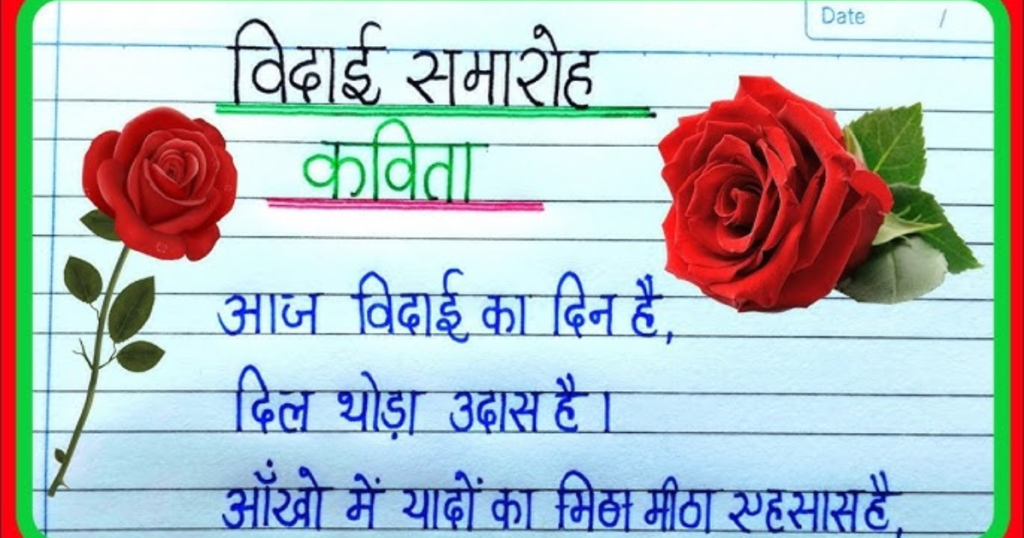 Date /
विदाई समारोह
कविता
आज विदाई का दिन है,
दिल थोड़ा उदास है।
आँखो में यादों का मिठा मीठा एहसास है,